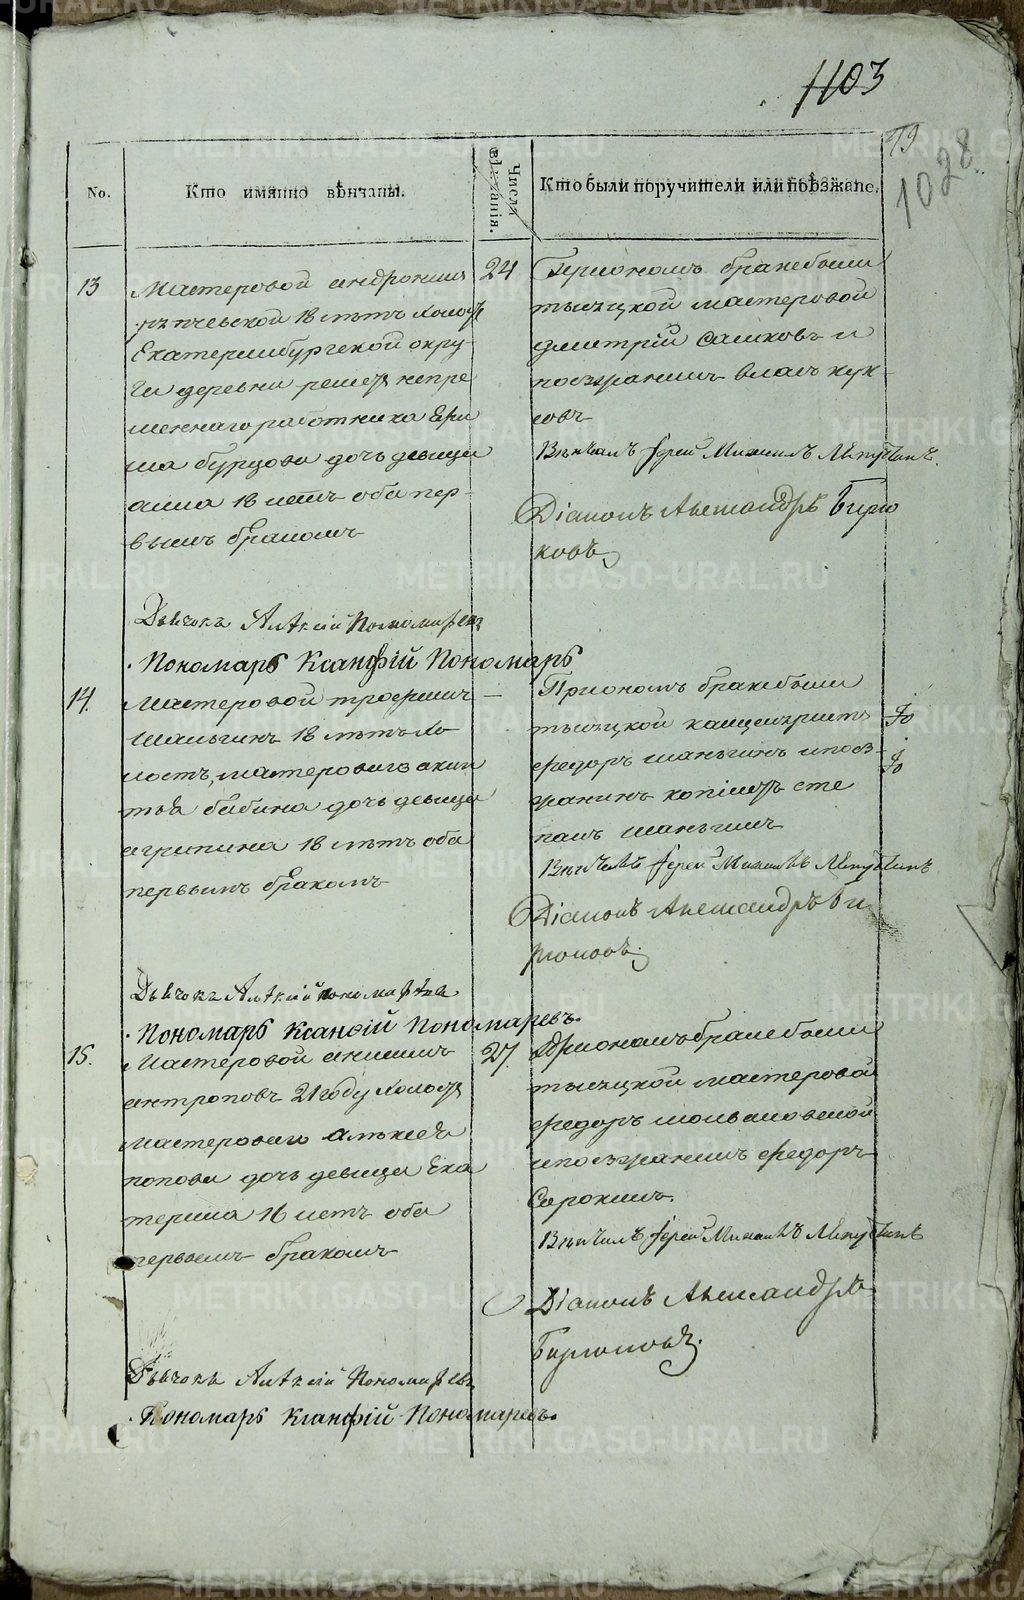 1103
19
1028
No.
Кто имянно вѣнчаны.
Числа вѣнчанія.
Кто были поручители или поѣзжане.
13
Мастеровой андронимъ
18 лѣтъ холостъ
Екатеринбургской окру-
ги деревни решетъ непре
меннаго работника Ери
ма бурцова дочь девица
анна 18 летъ оба пер-
вымъ бракомъ
24
При ономъ браке были
тысяцкой мастеровой
дмитрій сашковъ и
поезжанинъ власъ кук-
совъ
Венчалъ Іерей Михаилъ
Діаконъ Александръ Бирю
ковъ
Дьячокъ Алѣксій Пономаревъ
Пономарь Ксанфій Пономарь
14.
Мастеровой трофимъ
шаньгинъ 18 лѣтъ хо
лостъ, мастероваго аким
бабина дочь девица
агрипина 18 лѣтъ оба
первымъ бракомъ
При ономъ браке были
тысяцкой канцеляристъ
федоръ шаньгинъ и поез-
жанинъ копіистъ сте
панъ шаньгинъ
Венчалъ Іерей Михаилъ
Діаконъ Александръ Би
рюковъ.
Дьячокъ Алѣксій пономаревъ
Пономарь Ксанѳій Пономаревъ.
15.
Мастеровой анисимъ
антроповъ 21 году холостъ
мастероваго алексея
попова дочь девица Ека
терина 16 летъ оба
первымъ бракомъ
27.
При ономъ браке были
тысяцкой мастеровой
федоръ
и поезжанинъ федоръ
Сорокинъ.
Венчалъ Іерей Михаилъ
Діаконъ Александръ
Бирюковъ.
Дьячокъ Алѣксій Пономаревъ
Пономарь Ксанфій Пономаревъ.
METRIKI.GASO-URAL.RU